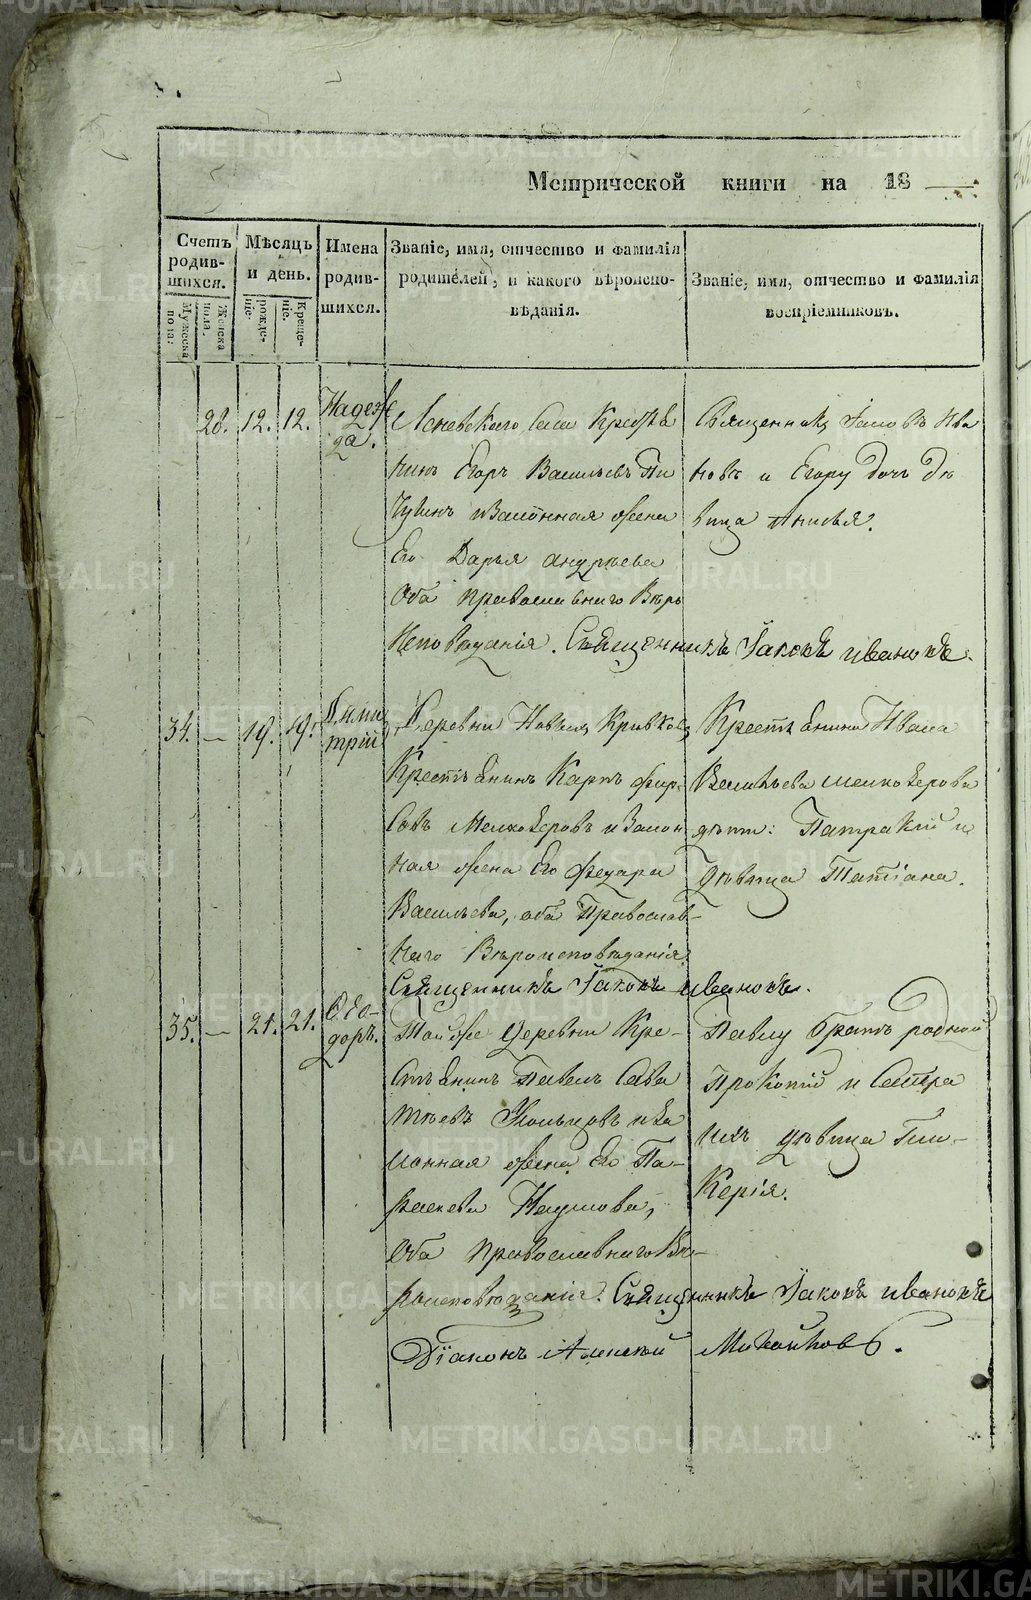 Метрической книги на 18
Счетъ родив-шихся.
Мужеска пола:
Женска пола.
Мѣсяцъ и день.
рожде-ніе:
Креще-ніе.
Имена родив-шихся.
Званіе, имя, отчество и фамилія
родителей, и какого вѣроиспо-
вѣданія.
Званіе, имя, отчество и фамилія
воспріемниковъ.
28. 12. 12. Надеж
да.
Села Кресть
нинъ Егоръ Васильевъ Пи
чугинъ изаконная жена
Его Дарья андреева
Оба православнаго Вѣро
Исповѣданія. Священникъ Іаковъ ивановъ.
Священникъ Іаковъ Ива
новъ и Егору дочь дѣ
вица Анисья.
34. — 19. 19. Дими
трій
Деревни Кривков
Крестьянинъ Карпъ фир
совъ Мелкозеровъ изакон
ная жена Его Федора
Васильева, оба Православ-
наго Вѣроисповѣданія.
Священникъ Іаковъ ивановъ.
Крестьянина Ивана
Васильева мелкозерова
дѣти: Патракій и
дѣвица Татіана.
35. — 21. 21. Ѳео-
доръ.
Тойже деревни Кре-
стьянинъ Павелъ Сава
тѣевъ иза
конная жена Его Па-
раскева Наумова,
Оба православнаго Вѣ-
роисповѣданія. Священникъ Іаковъ ивановъ
Павлу братъ родной
Прокопій и Сестра
ихъ дѣвица Гли-
керія.
Діаконъ Алексѣй Михайловъ.
METRIKI.GASO-URAL.RU